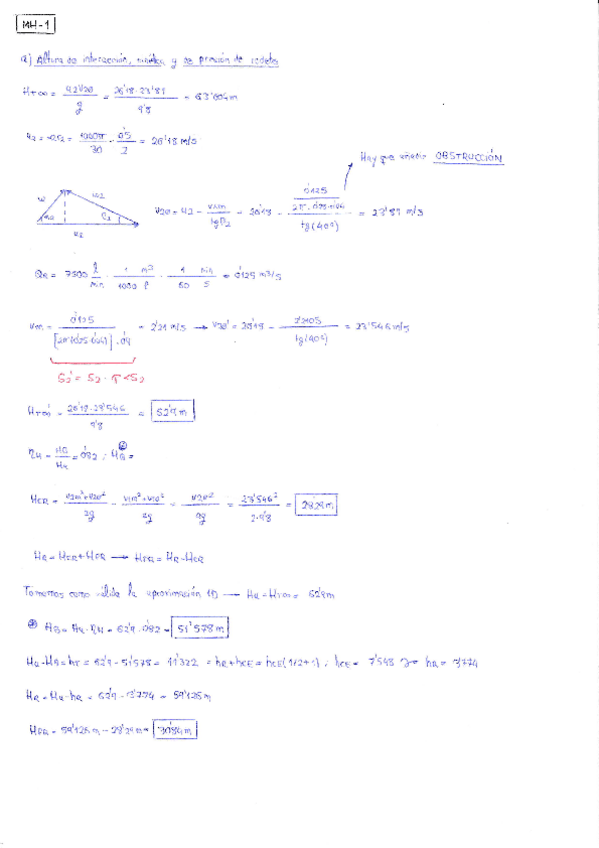 MH-1
a) Altura de interacción, cinética y de presión de rodete
Ht∞ = u2v2θ / g = 26'18·23'81 / 9'8 = 63'604m
u2 = ωr2 = 1000π / 30 · 0'5 / 2 = 26'18 m/s
Hay que añadir OBSTRUCCIÓN
v2θ = u2 - v2m / tgβ2 = 26'18 - 0'125 / tg(40º) = 23'81 m/s
QR = 7500 l / min · 1 m³ / 1000 l · 1 min / 60 s = 0'125 m³/s
0'125 = 2'21 m/s → v2θ' = 26'18 - 2'2105 / tg(40º) = 23'546 m/s
S2' = S2 · τ < S2
Ht∞' = 26'18·23'546 / 9'8 = 62'9m
ηH = HB / Hu = 0'82 ; HB =
HCR = v2m²+v2θ² / 2g - v1m²+v1θ² / 2g = v2θ² / 2g = 23'546² / 2·9'8 = 28'29m
HR = HCR + HPR → HPR = HR - HCR
Tomamos como válida la aproximación 1D → Hu = Ht∞ = 62'9m
HB = Hu·ηH = 62'9·0'82 = 51'578m
Hu - HB = hT = 62'9 - 51'578 = 11'322 = hR + hCE = hCE(1/2+1) ; hCE = 7'548 y hR = 3'774
HR = Hu - hR = 62'9 - 3'774 = 59'126m
HPR = 59'126m - 28'29m = 30'84m